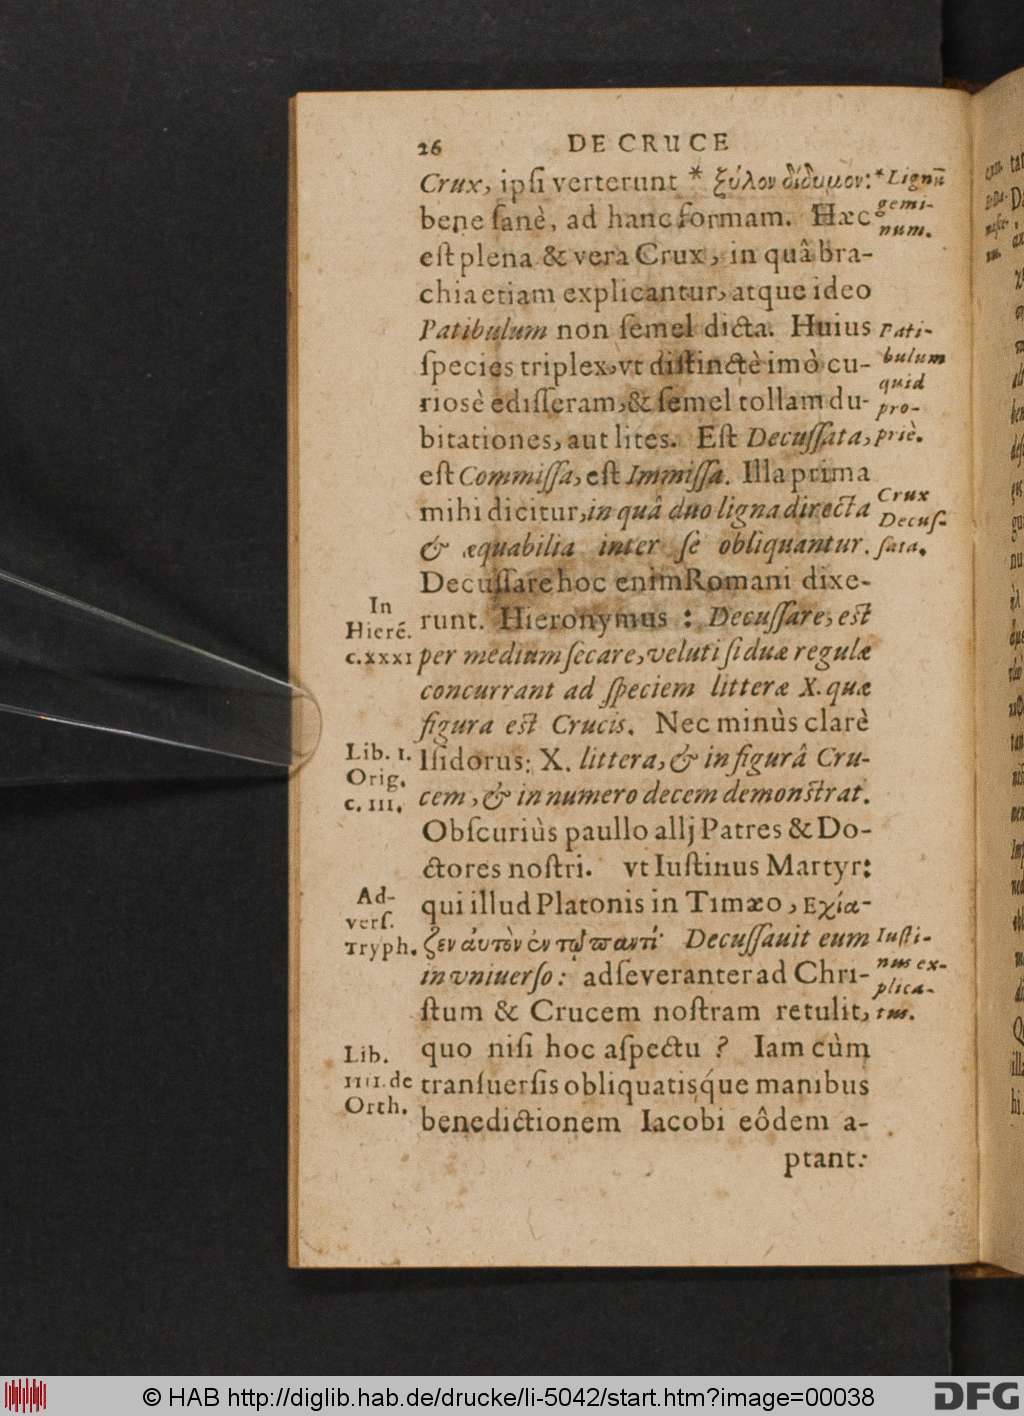 26 DE CRUCE
Crux, ipsi verterunt * ξύλον δίδυμον:
bene sanè, ad hanc formam. Hæc
est plena & vera Crux, in quâ bra-
chia etiam explicantur, atque ideo
Patibulum non semel dicta. Huius
species triplex, vt distinctè imò cu-
riosè edisseram, & semel tollam du-
bitationes, aut lites. Est Decussata,
est Commissa, est Immissa. Illa prima
mihi dicitur, in quâ duo ligna directa
& æquabilia inter se obliquantur.
Decussare hoc enim Romani dixe-
runt. Hieronymus : Decussare, est
per medium secare, veluti si duæ regulæ
concurrant ad speciem litteræ X. quæ
figura est Crucis. Nec minùs clarè
Isidorus: X. littera, & in figurâ Cru-
cem, & in numero decem demonstrat.
Obscuriùs paullo allj Patres & Do-
ctores nostri. vt Iustinus Martyr:
qui illud Platonis in Timæo, Εχία-
ζεν ἀυτὸν ἐν τῷ παντί· Decussauit eum
in vniuerso: adseveranter ad Chri-
stum & Crucem nostram retulit,
quo nisi hoc aspectu ? Iam cùm
transuersis obliquatisq́ue manibus
benedictionem Iacobi eôdem a-
ptant:
* Lignū
gemi-
num.
Pati-
bulum
quid
pro-
priè.
Crux
Decus-
sata.
In
Hieré.
c.xxxi
Lib. I.
Orig.
c. III.
Ad-
vers.
Tryph.
Iusti-
nus ex-
plica-
tus.
Lib.
IIII. de
Orth.
© HAB http://diglib.hab.de/drucke/li-5042/start.htm?image=00038
DFG